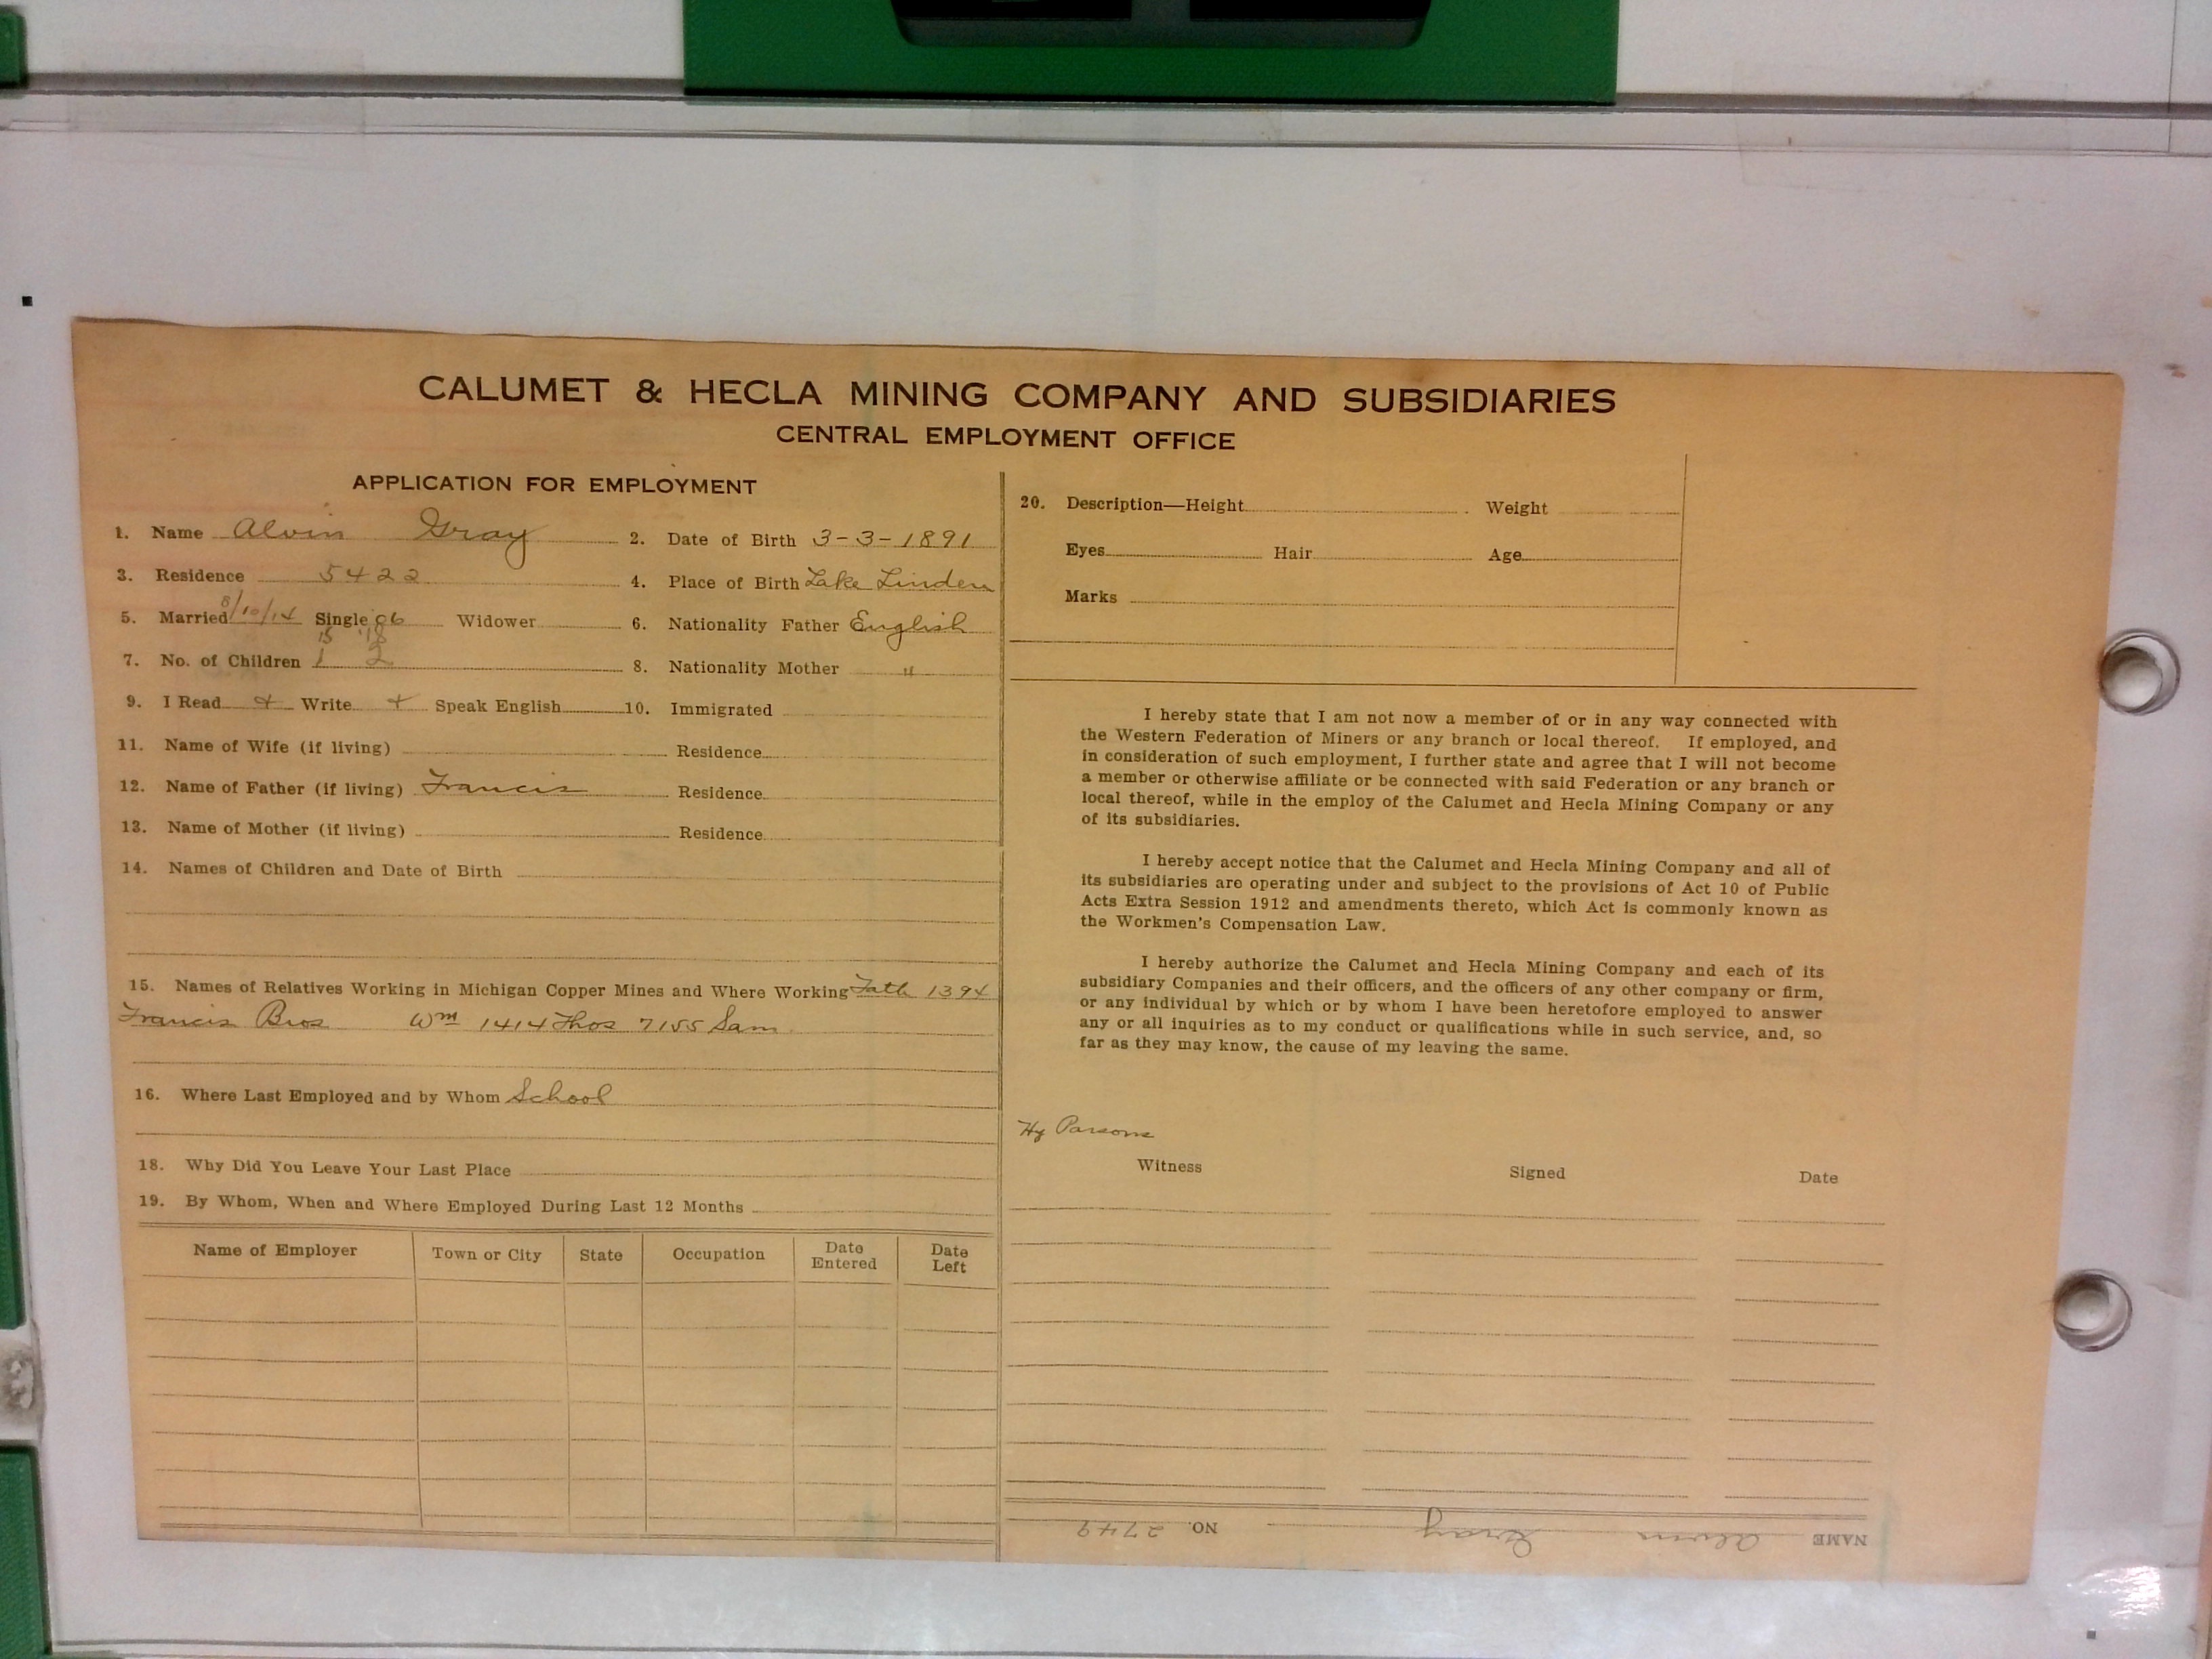 CALUMET & HECLA MINING COMPANY AND SUBSIDIARIES
CENTRAL EMPLOYMENT OFFICE
APPLICATION FOR EMPLOYMENT
1. Name Alvin Gray 2. Date of Birth 3-3-1891
3. Residence 5422 4. Place of Birth Lake Linden
5. Married 8/10/14 Single 06 Widower 6. Nationality Father English
15 '18
7. No. of Children 1 2 8. Nationality Mother "
9. I Read + Write + Speak English 10. Immigrated
11. Name of Wife (if living) Residence
12. Name of Father (if living) Francis Residence
13. Name of Mother (if living) Residence
14. Names of Children and Date of Birth
15. Names of Relatives Working in Michigan Copper Mines and Where Working Fath 1394
Francis Bros Wm 1414 Thos 7155 Sam
16. Where Last Employed and by Whom School
18. Why Did You Leave Your Last Place
19. By Whom, When and Where Employed During Last 12 Months
Name of Employer Town or City State Occupation Date Entered Date Left
20. Description—Height Weight
Eyes Hair Age
Marks
I hereby state that I am not now a member of or in any way connected with
the Western Federation of Miners or any branch or local thereof. If employed, and
in consideration of such employment, I further state and agree that I will not become
a member or otherwise affiliate or be connected with said Federation or any branch or
local thereof, while in the employ of the Calumet and Hecla Mining Company or any
of its subsidiaries.
I hereby accept notice that the Calumet and Hecla Mining Company and all of
its subsidiaries are operating under and subject to the provisions of Act 10 of Public
Acts Extra Session 1912 and amendments thereto, which Act is commonly known as
the Workmen's Compensation Law.
I hereby authorize the Calumet and Hecla Mining Company and each of its
subsidiary Companies and their officers, and the officers of any other company or firm,
or any individual by which or by whom I have been heretofore employed to answer
any or all inquiries as to my conduct or qualifications while in such service, and, so
far as they may know, the cause of my leaving the same.
Hy Parsons
Witness Signed Date
NAME Alvin Gray NO. 2749